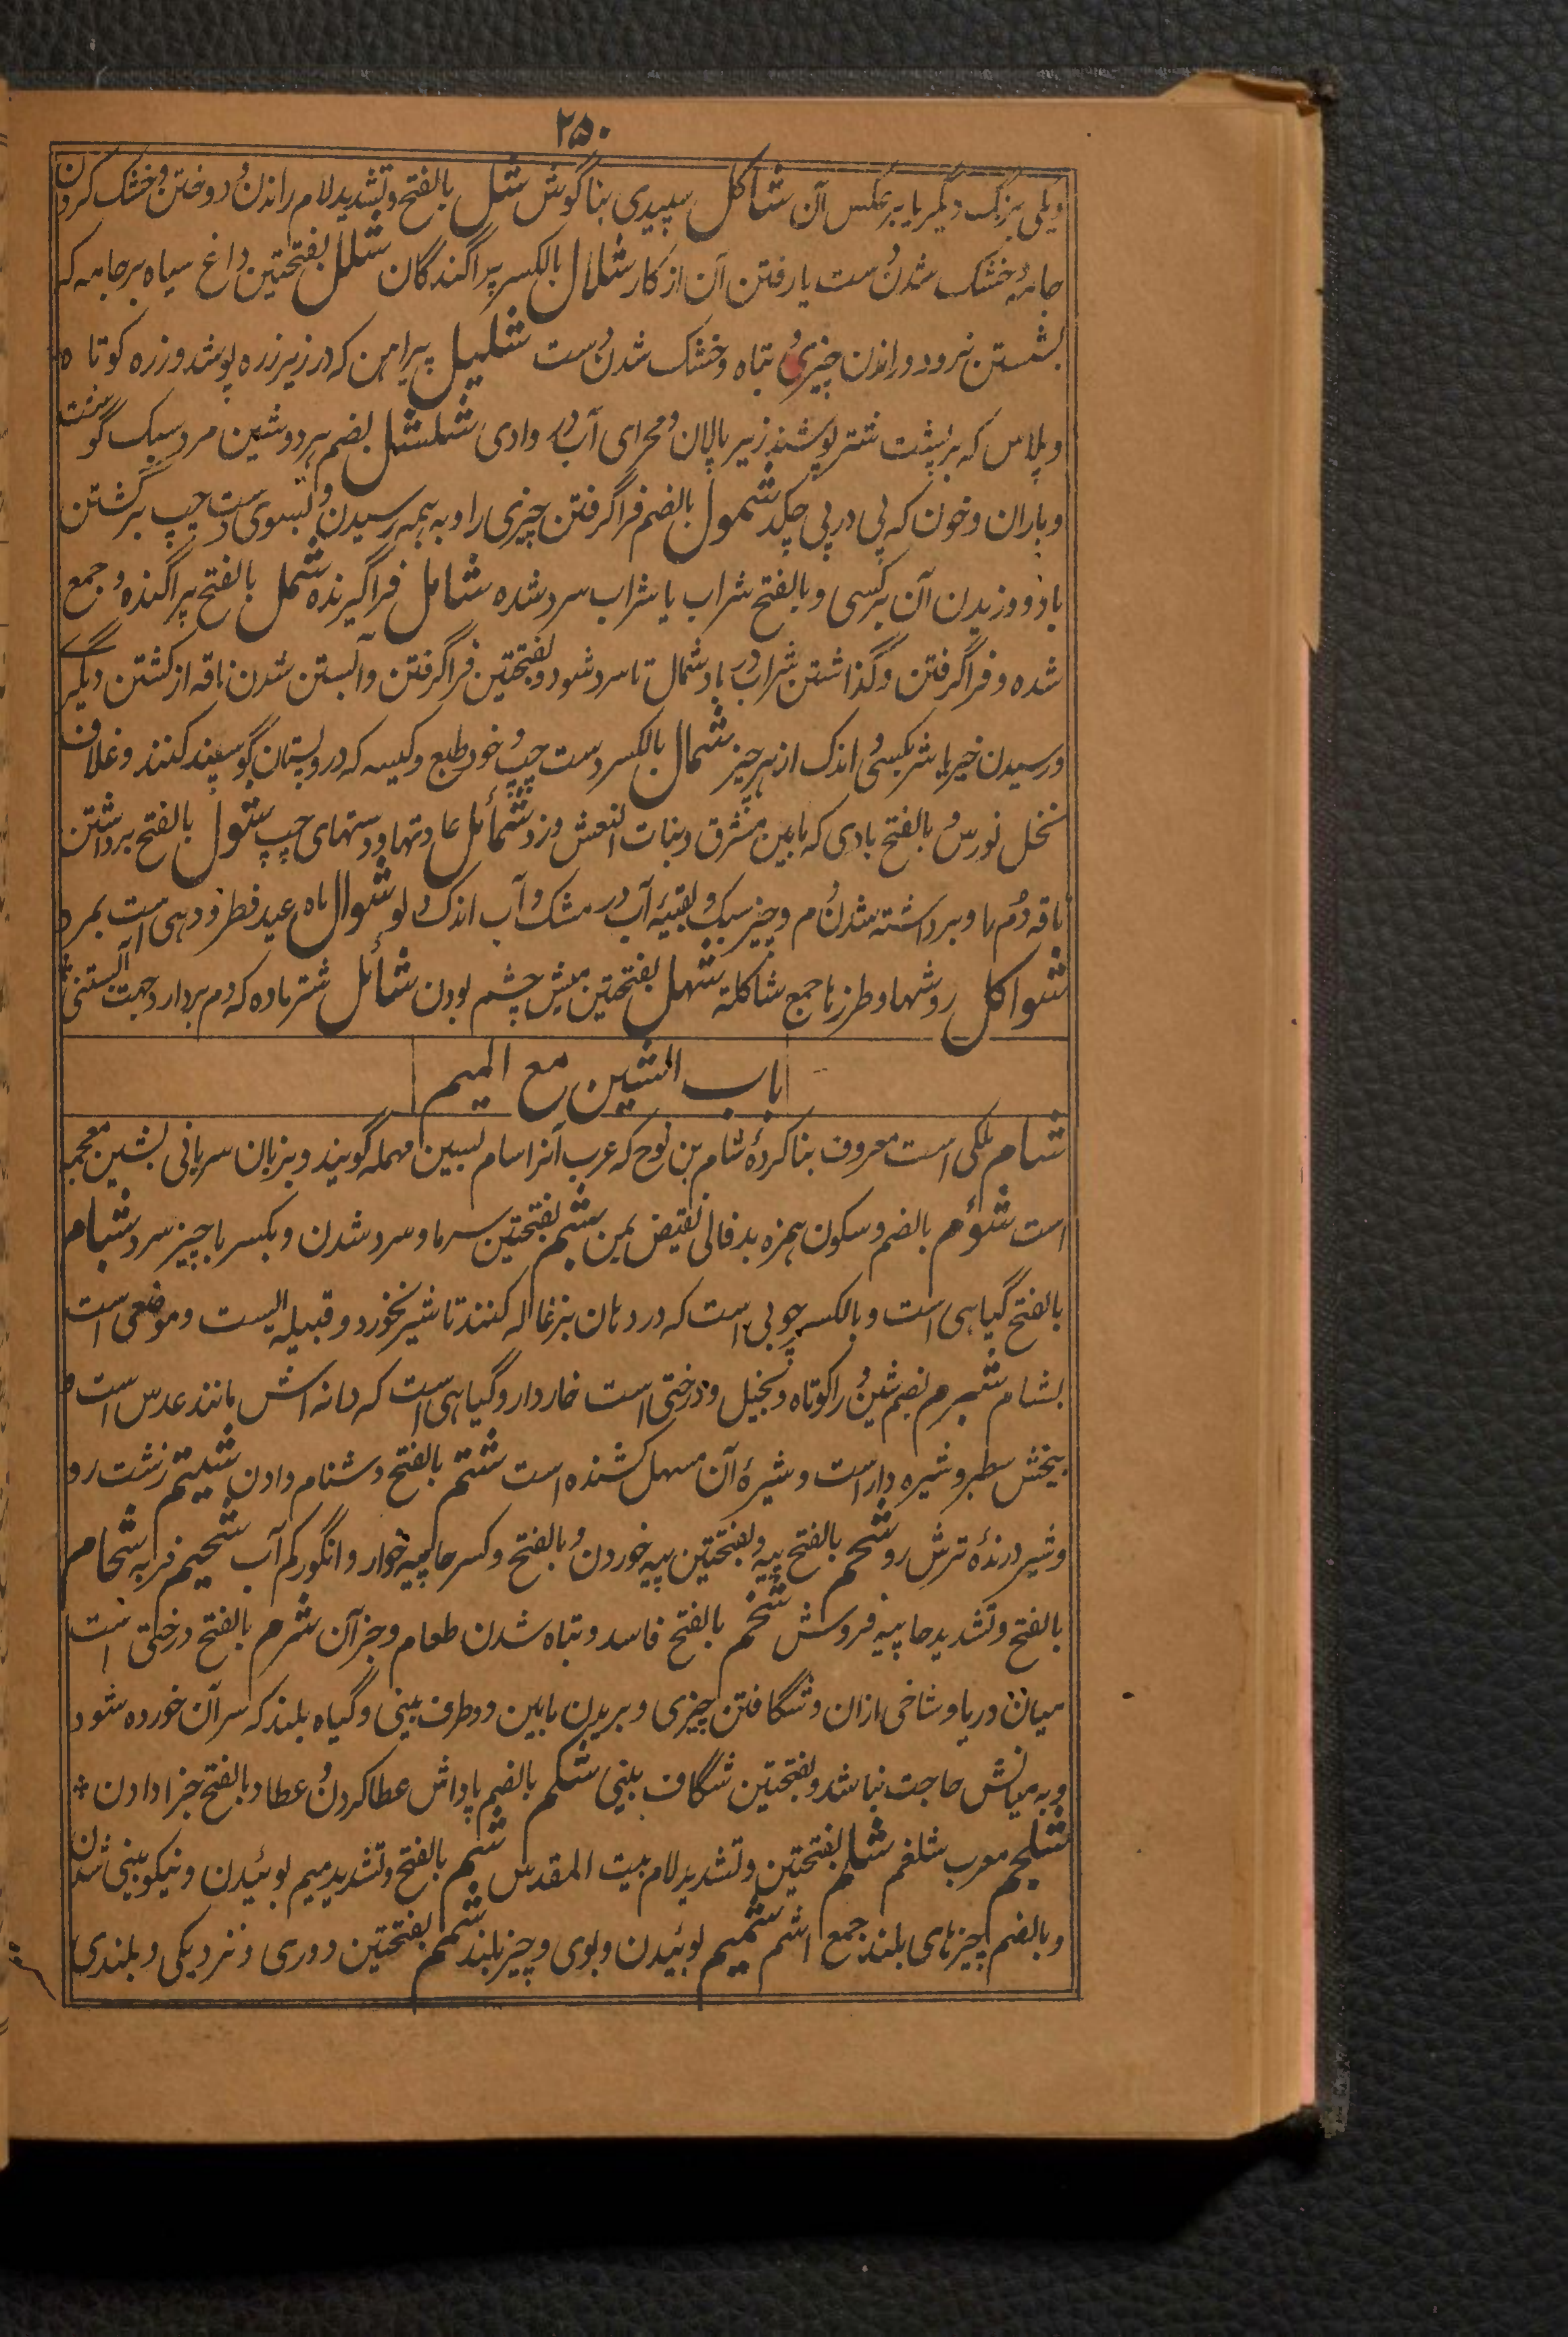 ۲۵۰
ویکی بزرگ دیگر یا برعکس آن شاکل سپیدی بناگوش شل بالفتح و تشدید لام راندن و دوختن و خشک کردن
جامه و خشک شدن دست یا رفتن آن از کار شلال بالکسر پراگندگان شلل بفتحتین داغ سیاه بر جامه که
بشستن نرود و راندن چیزی و تباه و خشک شدن دست شلیل پیراهن که در زیر زره پوشند و زره کوتاه
و پلاس که بر پشت شتر پوشند زیر پالان و مجرای آب در وادی شلشل بضم هر دو شین مرد سبک گوشت
و باران و خون که پی در پی چکد شمول بالضم فراگرفتن چیزی را و به همه رسیدن و بسوی دست چپ برگشتن
باد و وزیدن آن بر کسی و بالفتح شراب یا شراب سرد شده شامل فراگیرنده شمل بالفتح پراگنده و جمع
شده و فراگرفتن و گذاشتن شراب در باد شمال تا سرد شود و بفتحتین فراگرفتن و آبستن شدن ناقه از گشتن دیگر
و رسیدن خیر یا شر بکسی و اندک از هر چیز شمال بالکسر دست چپ و خو و طبع و کیسه که در و پستان گوسپند کنند و غلاف
نخل نورس و بالفتح بادی که مابین مشرق و بنات النعش وزد شمائل عادتها و دستهای چپ شول بالفتح برداشتن
ناقه دم را و برداشته شدن دم و چیز سبک و بقیه آب در مشک و آب اندک و دلو شوال ماه عید فطر و دهی است بمرو
شواکل روشها و طرزها جمع شاکلة شهل بفتحتین میش چشم بودن شائل شتر ماده که دم بردارد جهت آبستنی *
باب الشین مع المیم
شام ملکی است معروف بنا کردهٔ شام بن نوح که عرب آنرا سام بسین مهمله گویند و بزبان سریانی بشین معجمه
است شؤم بالضم و سکون همزه بدفالی نقیض یمن شبم بفتحتین سرما و سرد شدن و بکسر با چیز سرد شبام
بالفتح گیاهی است و بالکسر چوبی است که در دهان بزغاله کنند تا شیر نخورد و قبیله ایست و موضعی است
بشام شبرم بضم شین و را کوتاه و بخیل و درختی است خاردار و گیاهی است که دانه اش مانند عدس است و
بیخش سطبر و شیره دار است و شیرهٔ آن مسهل کشنده است شتم بالفتح دشنام دادن شتیم زشت رو
و شیر درندهٔ ترش رو شحم بالفتح پیه و بفتحتین پیه خوردن و بالفتح و کسر حا پیه خوار و انگور کم آب شحیم فربه شحام
بالفتح و تشدید حا پیه فروش شخم بالفتح فاسد و تباه شدن طعام و جز آن شرم بالفتح درختی است
میان دریا و شاخی از ان و شگافتن چیزی و بریدن مابین دو طرف بینی و گیاه بلند که سر آن خورده شود
و به میانش حاجت نباشد و بفتحتین شگاف بینی شکم بالضم پاداش عطا کردن و عطا و بالفتح جزا دادن *
شلجم معرب شلغم شلم بفتحتین و تشدید لام بیت المقدس شم بالفتح و تشدید میم بوئیدن و نیکو بینی شدن
و بالضم چیزهای بلند جمع اشم شمیم بوئیدن و بوی و چیز بلند شمم بفتحتین دوری و نزدیکی و بلندی